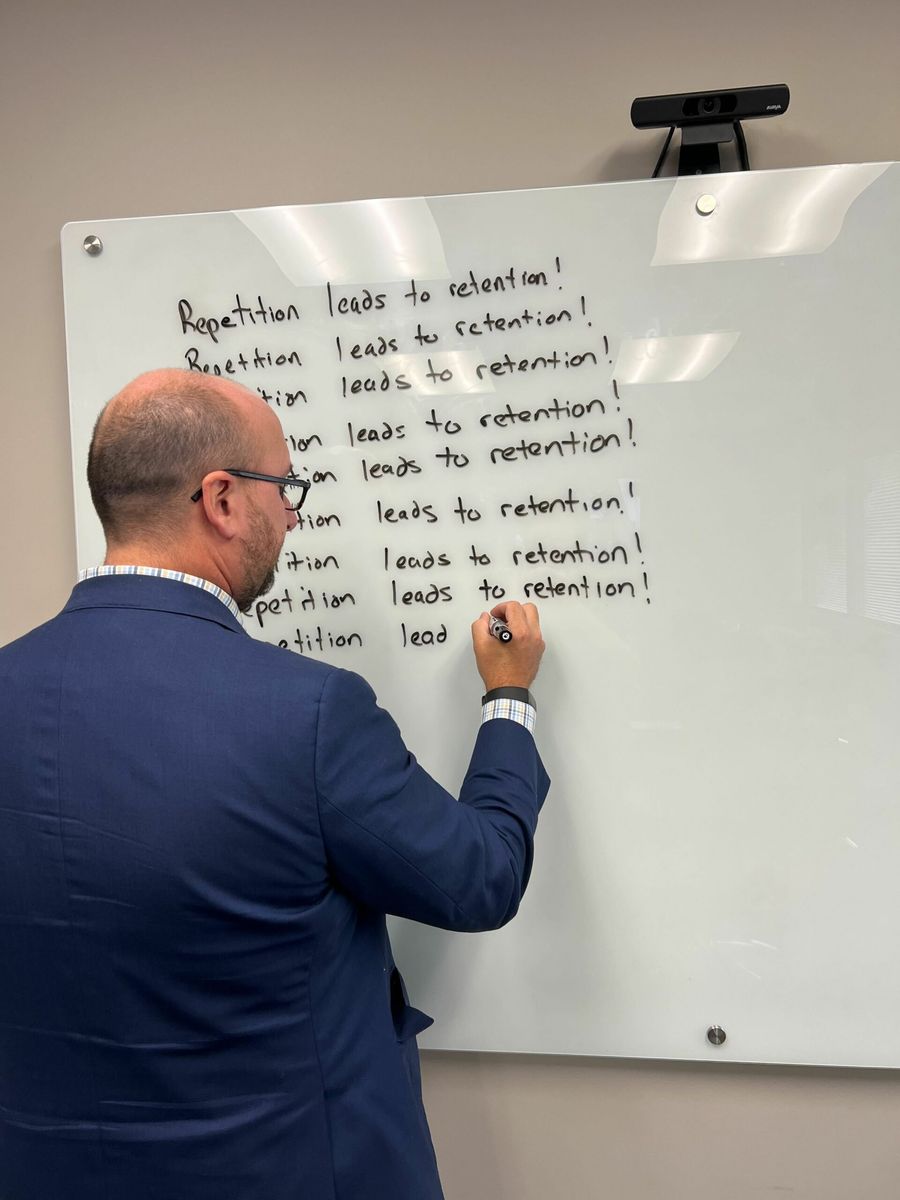 AVAYA
Repetition leads to retention!
Repetition leads to retention!
ition leads to retention!
ion leads to retention!
tion leads to retention!
tion leads to retention!
ition leads to retention!
epetition leads to retention!
etition lead